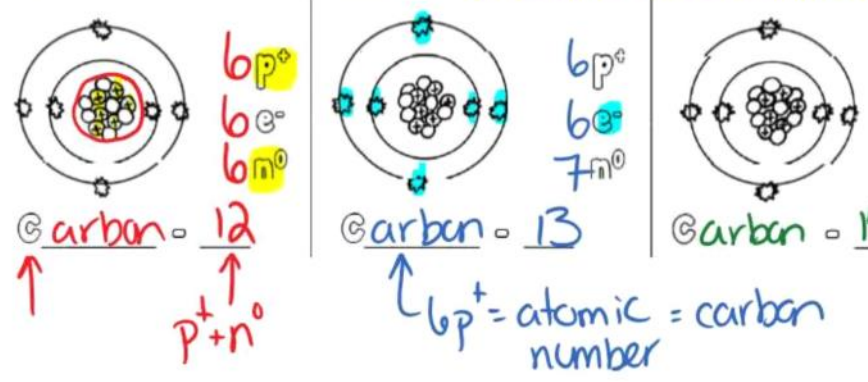 6p⁺
6e⁻
6n⁰
Carbon - 12
p⁺+n⁰
6p⁺
6e⁻
7n⁰
Carbon - 13
6p⁺ = atomic number = carbon
Carbon - 1